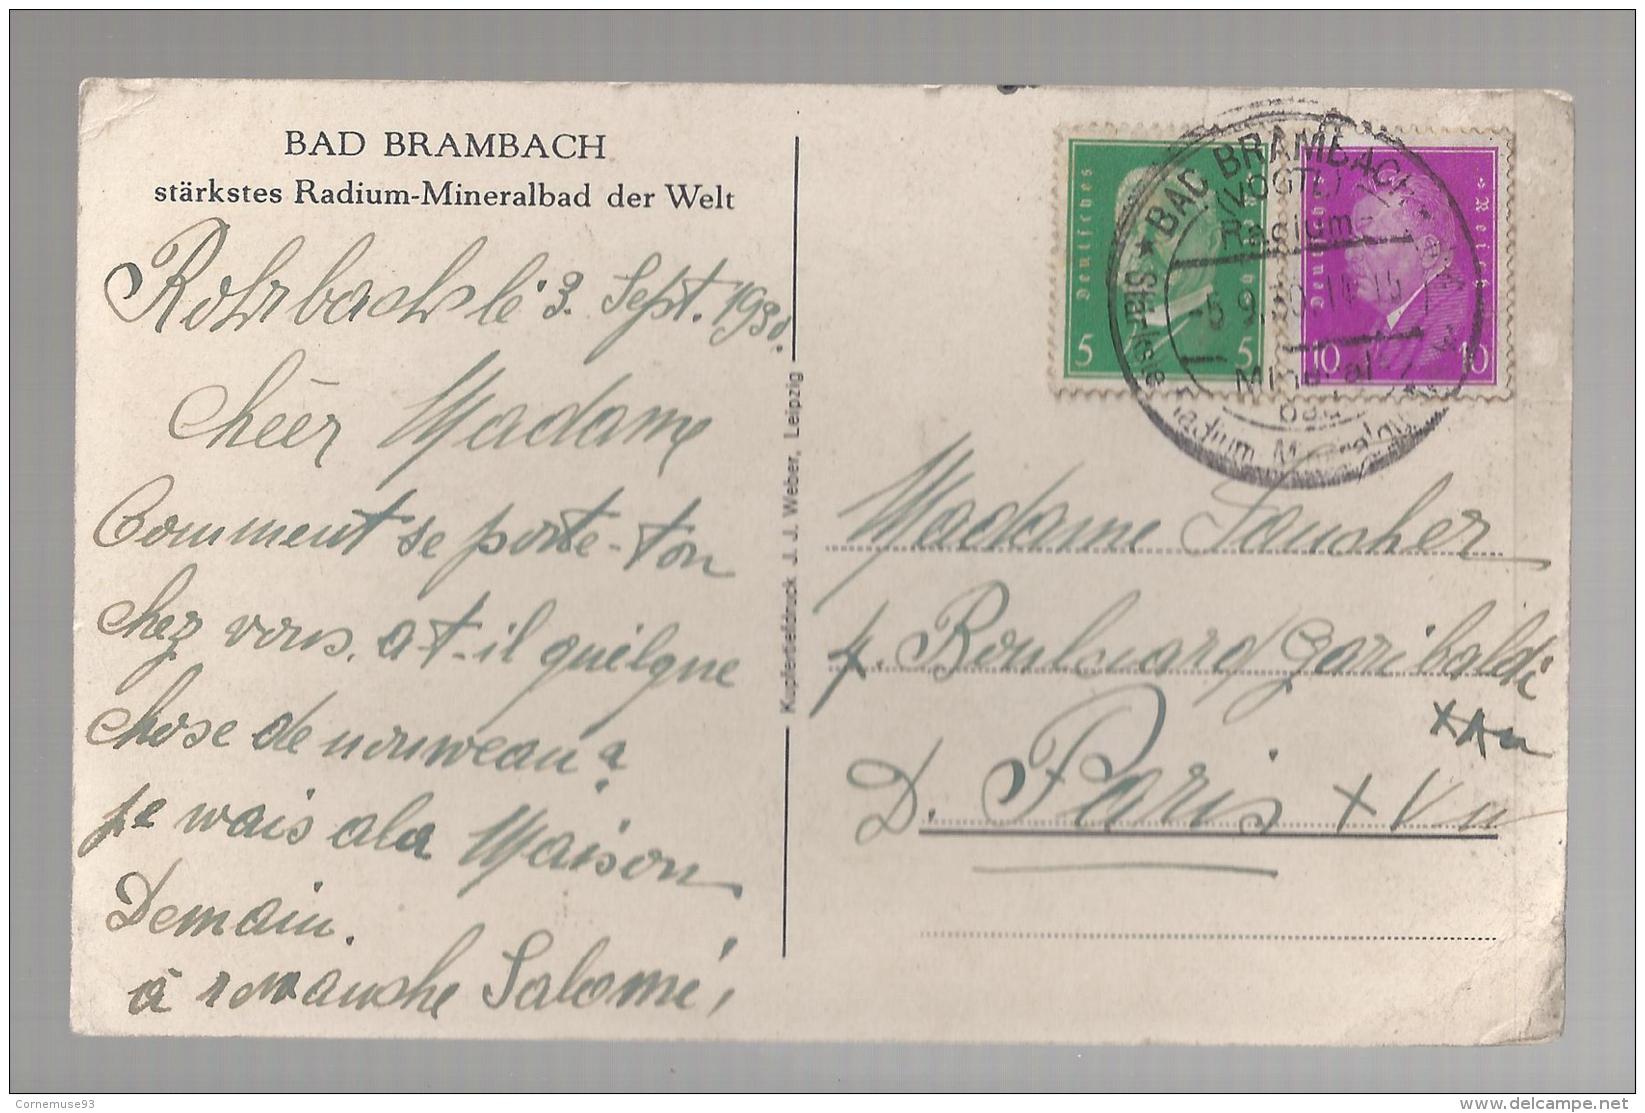 BAD BRAMBACH
stärkstes Radium-Mineralbad der Welt
Rohrbach le 3. Sept. 1930.
Chéer Madame
Comment se porte-ton
chez vous. at-il quelque
chose de nouveau?
je wais ala Maison
Demain.
à Salomé,
Kupfertiefdruck J. J. Weber, Leipzig
Deutsches Reich
5 5
Deutsches Reich
10 10
BAD BRAMBACH
(VOGTL)
Radium-
-5.9.30.
Mineral
bad
Radium Mineral
Madame Faucher
4. Boulward Garibaldi
XV
D. Paris XV
Cornemuse93
delcampe.net